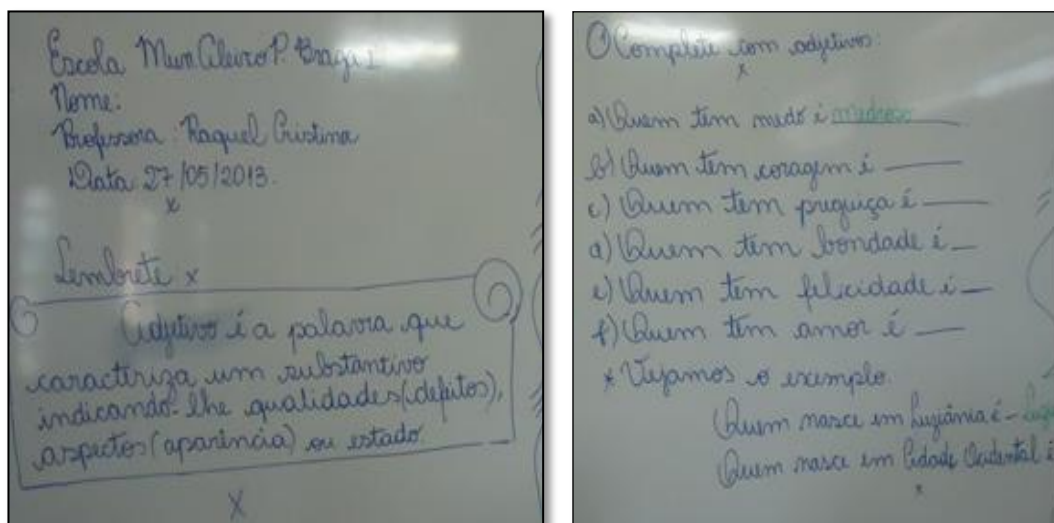 Escola Mun Aleixo P. Braga I
Nome:
Professora: Raquel Cristina
Data 27/05/2013.
x
Lembrete x
Adjetivo é a palavra que
caracteriza um substantivo
indicando-lhe qualidades(defeitos),
aspectos(aparência) ou estado
X
Complete com adjetivos:
x
a) Quem tem medo é medroso
b) Quem tem coragem é ____
c) Quem tem preguiça é ____
d) Quem tem bondade é __
e) Quem tem felicidade é __
f) Quem tem amor é ____
* Vejamos o exemplo.
Quem nasce em Luziânia é -
Quem nasce em Cidade Ocidental é
x